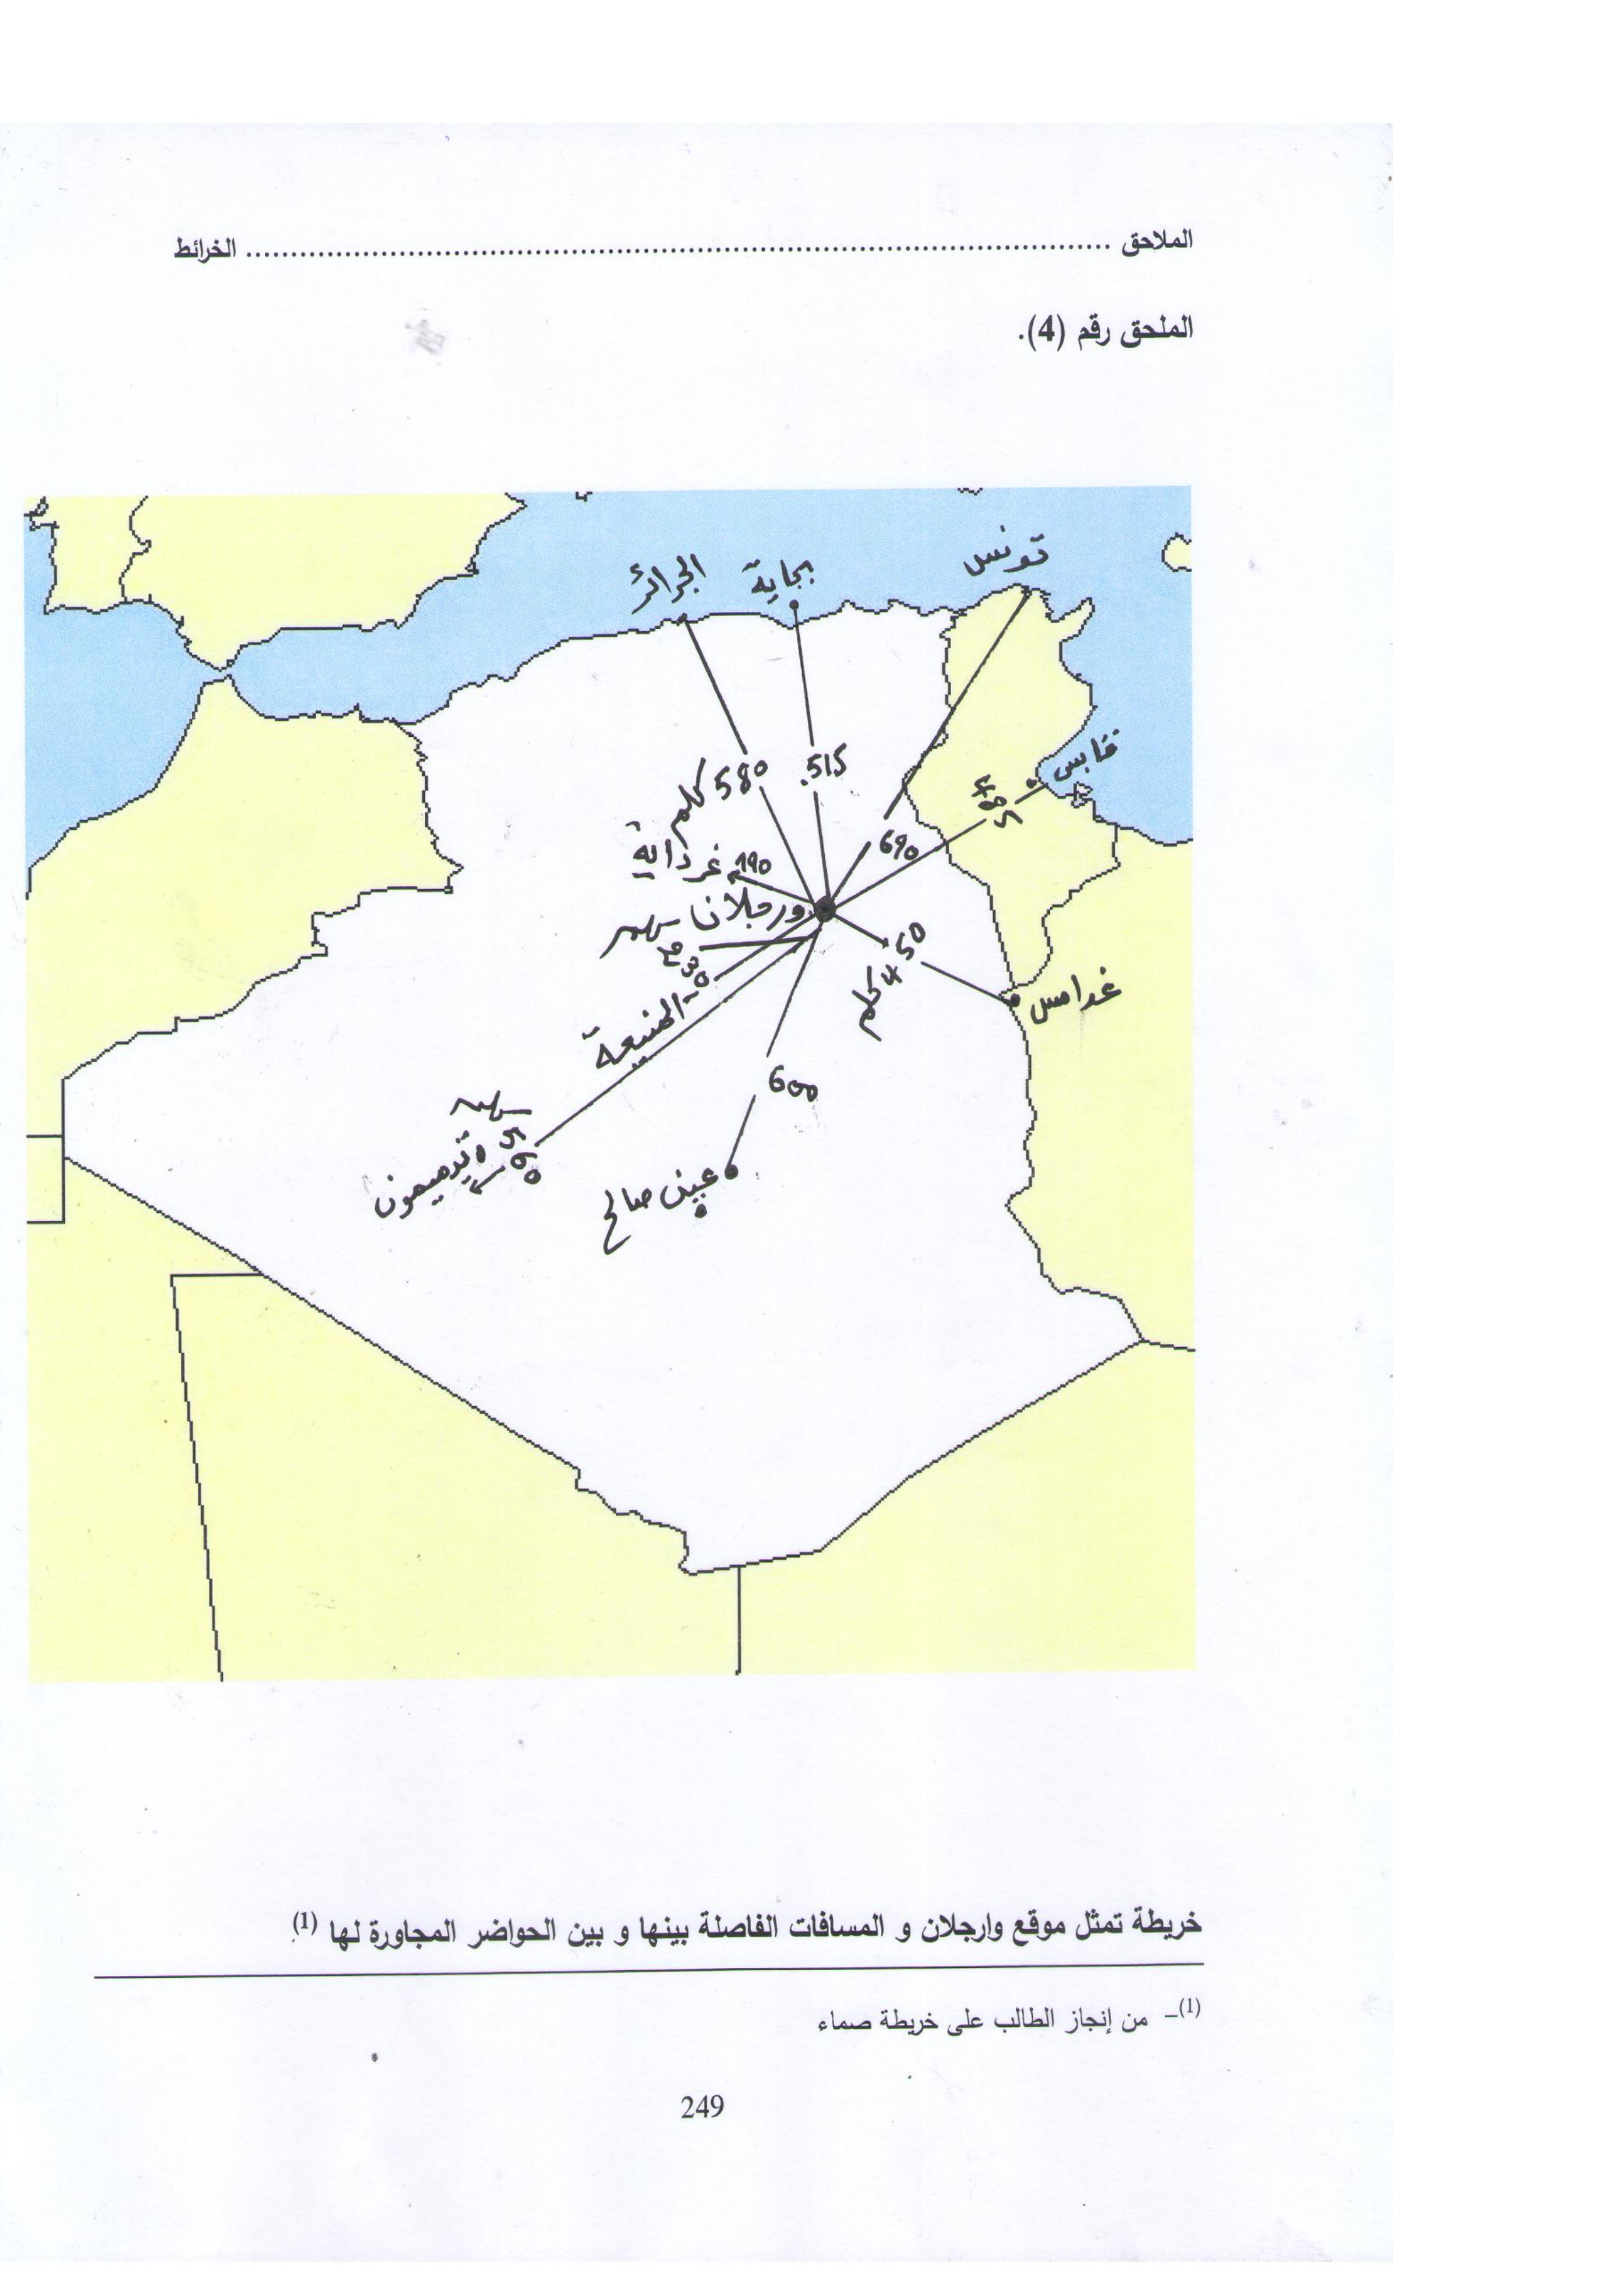 الملاحق ........................................................................................ الخرائط
الملحق رقم (4).
تونس
الجزائر
بجاية
قابس
580 كلم
515
485
690
غرداية 190
ورجلان
230
450 كلم
غدامس
المنيعة
600
560
تيميمون
عين صالح
خريطة تمثل موقع وارجلان و المسافات الفاصلة بينها و بين الحواضر المجاورة لها (1).
(1)– من إنجاز الطالب على خريطة صماء
249